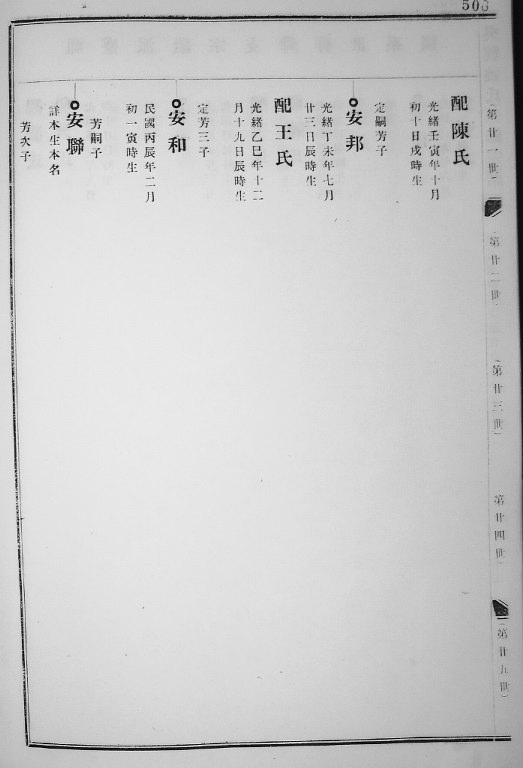 503
第廿一世
第廿二世
第廿三世
第廿四世
第廿五世
配陳氏
光緒壬寅年十月
初十日戌時生
定嗣芳子
安邦
光緒丁未年七月
廿三日辰時生
配王氏
光緒乙巳年十二
月十九日辰時生
定芳三子
安和
民國丙辰年二月
初一寅時生
芳嗣子
安聯
詳本生本名
芳次子